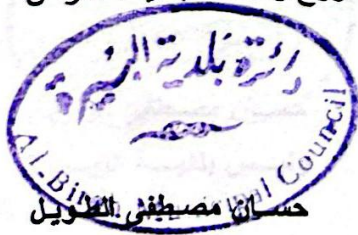 دائرة بلدية البيرة
Al-Bireh Municipal Council
حسان مصطفى الطويل